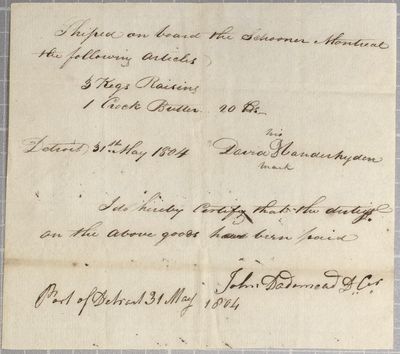 Shiped on board the Schooner Montreal
the following articles
3 Kegs Raisins
1 Crock Butter 20 lbs
his
Detroit 31st May 1804 David Vanderhyden
mark
I do hereby Certify that the duties
on the above goods have been paid
John Dodemead D. Col
Port of Detroit 31 May 1804